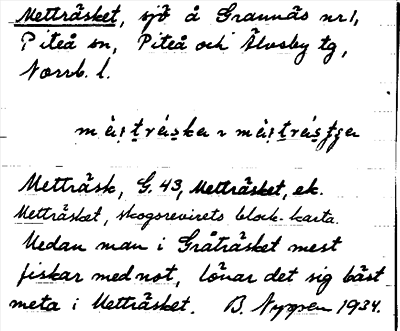 Metträsket, sjö å Grannäs nr 1,
Piteå sn, Piteå och Älvsby tg,
Norrb. l.
Metträsk, G. 43, Metträsket, ek.
Metträsket, skogsrevirets block-karta.
Medan man i Gråträsket mest
fiskar med not, lönar det sig bäst
meta i Metträsket. B. Nyppen 1934.